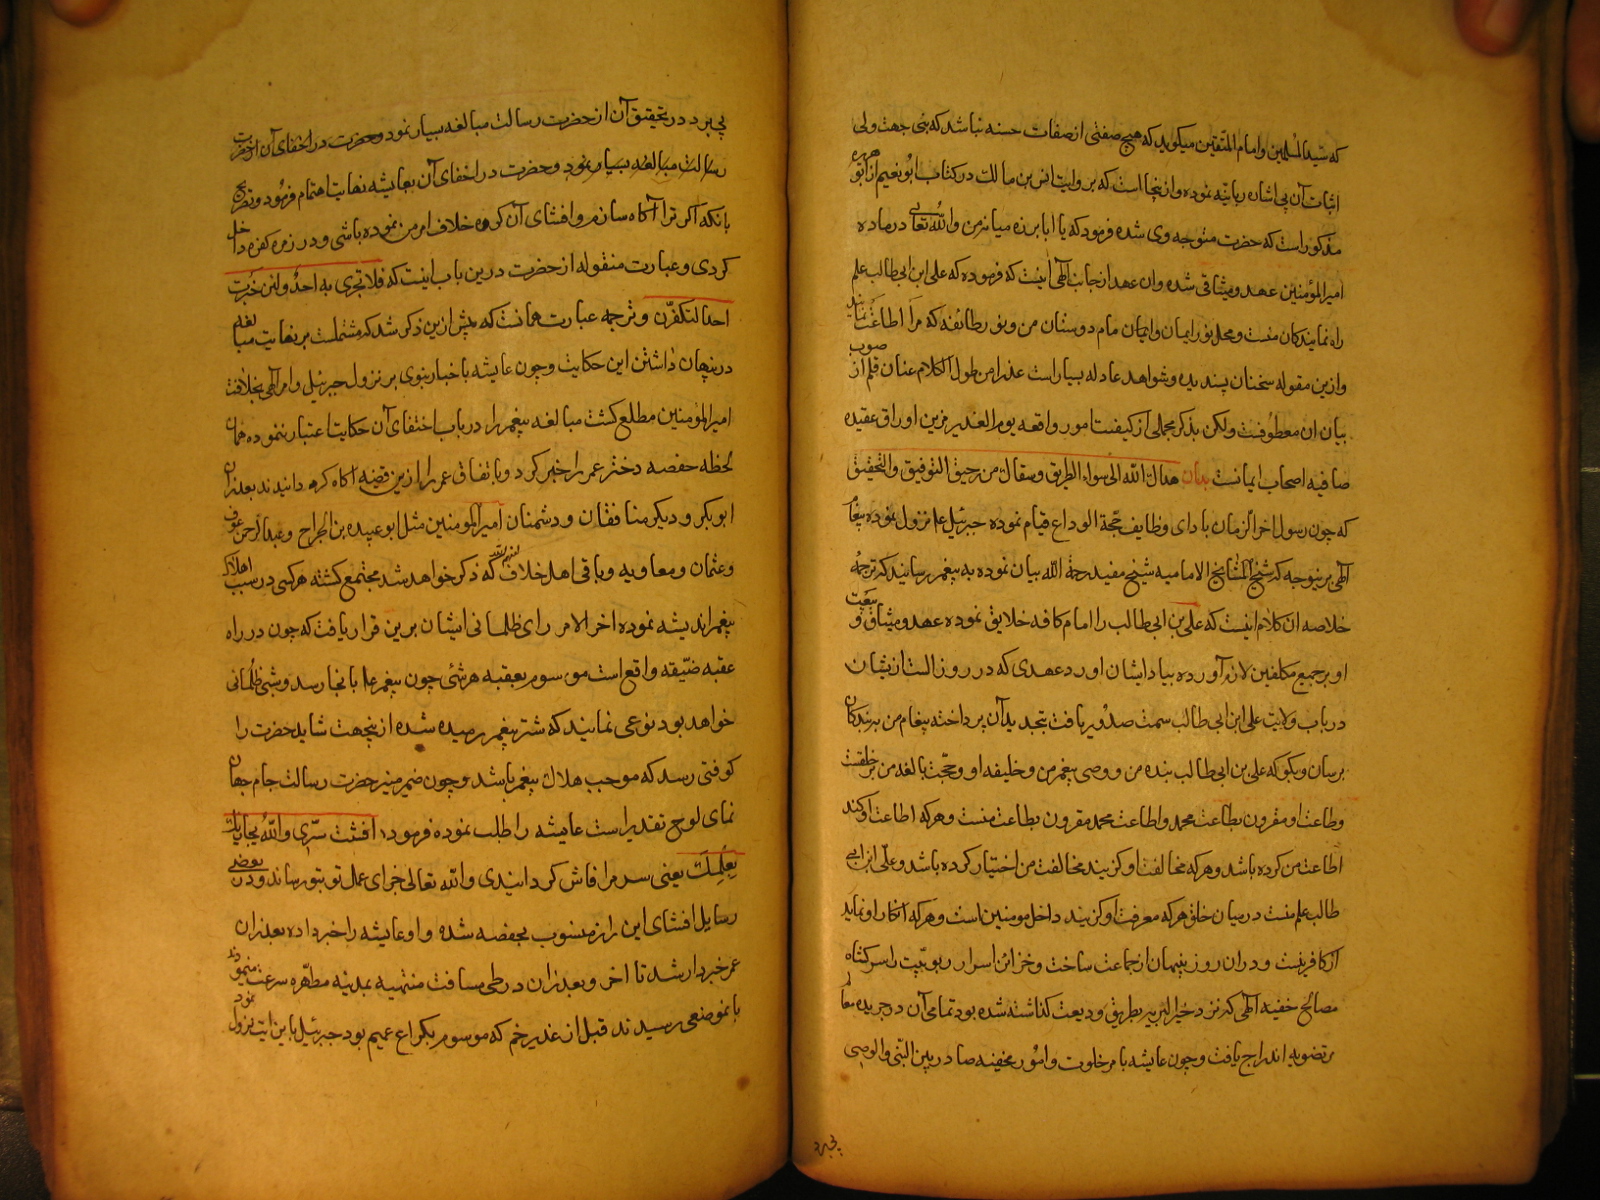 که سید المسلمین و امام المتقین میکوید که هیچ صفتی از صفات حسنه نباشد که نبی جهت ولی
اثبات آن بی اشاره ربانیه نموده و ازینجا است که بروایت انس بن مالک در کتاب ابونعیم از ابو هریره
مذکور است که حضرت متوجه وی شده فرمود که یا ابا برزه میانه من و الله تعالی در ماده
امیرالمؤمنین عهد و میثاقی شده و ان عهد از جانب الهی اینست که فرموده که علی ابن ابی طالب علم
راه نمایندکان منست و محل نور ایمان و امام دوستان من و نور طایفه که مرا اطاعت نمایند
و ازین مقوله سخنان پسندیده و شواهد عادله بسیار است عذرا من طول الکلام عنان قلم از صوب
بیان ان معطوفست ولکن بذکر مجملی از کیفیت امور واقعه یوم الغدیر مزین اوراق عقیده
صافیه اصحاب ایمانست بدان هداک الله الی سواء الطریق و سقاک من رحیق التوفیق و التحقیق
که چون رسول اخر الزمان بادای وظایف حجة الوداع قیام نموده جبرئیل عم نزول نموده پیغام
الهی برینوجه که شیخ المشایخ الامامیه شیخ مفید رحمة الله بیان نموده به پیغمبر رسانید که ترجمهٔ
خلاصه ان کلام اینست که علی بن ابی طالب را امام کافه خلایق نموده عهد و میثاق و بیعت
او بر جمیع مکلفین لازم آورده بیاد ایشان اورد عهدی که در روز الست از یشان
در باب ولایت علی ابن ابی طالب سمت صدور یافت بتجدید آن پرداخته پیغام من به بندکان
برسان و بکو که علی بن ابی طالب بنده من و وصی پیغمبر من و خلیفه او و حجت بالغه من بر خلقست
و طاعت او مقرون بطاعت محمد و اطاعت محمد مقرون بطاعت منست و هر که اطاعت او کند
اطاعت من کرده باشد و هر که مخالفت او کزیند مخالفت من اختیار کرده باشد و علی ابن ابی
طالب علم منست در میان خلق هر که معرفت او کزیند داخل مومنین است و هر که انکار او نماید
از کافرینست و دران روز پنهان از جماعت ساخت و خزاین اسرار ربوبیت را سر کشاده
مصالح خفیه الهی که نزد خیر البریه بطریق ودیعت کذاشته شده بود تمامی آن در جریده
مرتضویه اندراج یافت و چون عایشه بامر خلوت و امور مخفیه صادر بین النبی و الوصی
پی برد
پی برد در تحقیق آن از حضرت رسالت مبالغه بسیار نمود و حضرت در اخفای آن از حضرت
رسالت مبالغه بسیار نمود و حضرت در اخفای آن بعایشه نهایت اهتمام فرمود و تصریح
بانکه اکر ترا آکاه سازم و افشای آن کرده خلاف امر من نموده باشی و در زمره کفره داخل
کردی و عبارت منقوله از حضرت درین باب اینست که فلا تجری به احدا و لئن خبرت
احدا لتکفرن و ترجمه عبارت همانست که پیش ازین ذکر شد که مشتملست بر نهایت مبالغه
در پنهان داشتن این حکایت و چون عایشه باخبار نبوی بر نزول جبرئیل و امر الهی بخلافت
امیر المؤمنین مطلع کشت مبالغه پیغمبر را در باب اختفای آن حکایت اعتبار ننموده همان
لحظه حفصه دختر عمر را خبر کرد و باتفاق عمر را ازین قضیه آکاه کردانیدند بعد ازان
ابوبکر و دیکر منافقان و دشمنان امیر المومنین مثل ابو عبیده بن الجراح و عبد الرحمن عوف
و عثمان و معاویه و باقی اهل خلاف که ذکر خواهد شد مجتمع کشته هر کسی در سبب اهلاک
پیغمبر اندیشه نموده اخر الامر رای ظلمانی ایشان برین قرار یافت که چون در راه
عقبه ضیقه واقع است موسوم بعقبه هرشی چون پیغمبر عم بانجا رسد و شبی ظلمانی
خواهد بود نوعی نمایند که شتر پیغمبر رمیده شده ازینجهت شاید حضرت را
کوفتی رسد که موجب هلاک پیغمبر باشد و چون ضمیر منیر حضرت رسالت جام جهان
نمای لوح تقدیر است عایشه را طلب نموده فرمود افشت سری و الله یجازیک
بعملک یعنی سر مرا فاش کردانیدی و الله تعالی جزای عمل تو بتو رساند و در بعضی
رسایل افشای این راز منسوب بحفصه شده و او عایشه را خبر داده بعد ازان
عمر خبردار شد تا اخر و بعد ازان در طی مسافت منتهیه بمدینه مطهره سرعت مینمود
تا بموضعی رسیدند قبل از غدیر خم که موسوم بکراع عمیم بود جبرئیل باین ایت نزول نمود